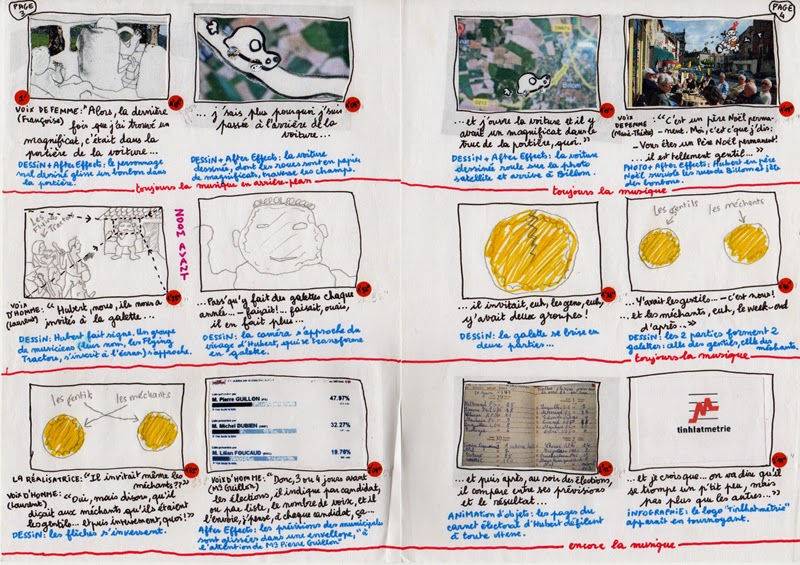 PAGE 3
VOIX DE FEMME: "Alors, la dernière
(Françoise) fois que j'ai trouvé un
magnificat, c'était dans la
portière de la voiture...
DESSIN + After Effects: le personnage
mal dessiné glisse un bonbon dans
la portière.
... j'sais plus pourquoi j'suis
passée à l'arrière de la
voiture...
DESSIN + After Effects: la voiture
dessinée, dont les roues sont en papier
de magnificat, traverse les champs.
toujours la musique en arrière-plan
Les Flying Tractors
ZOOM AVANT
VOIX D'HOMME: "Hubert, nous, ils nous a
(Laurent) invités à la galette...
DESSIN: Hubert fait signe. Un groupe
de musiciens (leur nom, les Flying
Tractors, s'inscrit à l'écran) s'approche.
...Pass'qu'y fait des galettes chaque
année... - faisait!... faisait, ouais,
il en fait plus...
DESSIN: la caméra s'approche du
visage d'Hubert, qui se transforme
en galette.
les gentils les méchants
LA RÉALISATRICE: "Il invitait même les
méchants??"
VOIX D'HOMME: "Oui, mais disons, qu'il
(Laurent) disait aux méchants qu'ils étaient
les gentils... et puis inversement, quoi!"
DESSIN: les flèches s'inversent.
M. Pierre GUILLON 47.97%
M. Michel DUBIEN 32.27%
M. Lilian FOUCAUD 19.76%
VOIX D'HOMME: "Donc, 3 ou 4 jours avant
(M3 Guillon) les élections, il indique par candidat,
ou par liste, le nombre de voix, et il
l'envoie, j'pense, à chaque candidat, ça...
After Effects: les prévisions des municipales
sont glissées dans une enveloppe, "à
l'attention de M3 Pierre Guillon"
PAGE 4
Billom
...et j'ouvre la voiture et il y
avait un magnificat dans le
truc de la portière, quoi."
DESSIN + After Effects: la voiture
dessinée roule sur la photo
satellite et arrive à Billom.
VOIX DE FEMME "C'est un père Noël perma-
-nent. Moi, c'est c'que j'dis:
- Vous êtes un Père Noël permanent!
... il est tellement gentil..."
PHOTO + After Effects: Hubert en père
Noël survole les rues de Billom et jette
des bonbons.
toujours la musique
...il invitait, euh, les gens, euh,
y'avait deux groupes!
DESSIN: la galette se brise en
deux parties...
les gentils les méchants
Y'avait les gentils... - c'est nous!
... et les méchants, euh, le week-end
d'après...
DESSIN: les 2 parties forment 2
galettes: celle des gentils, celle des méchants.
toujours la musique
... et puis après, au soir des élections,
il compare entre ses prévisions
et le résultat...
ANIMATION d'objets: les pages du
carnet électoral d'Hubert défilent
à toute vitesse.
tinhlatmetrie
... et je crois que... on va dire qu'il
se trompe un p'tit peu, mais
pas plus que les autres..."
INFOGRAPHIE: le logo "Tinhlatmétrie"
apparaît en tournoyant.
encore la musique